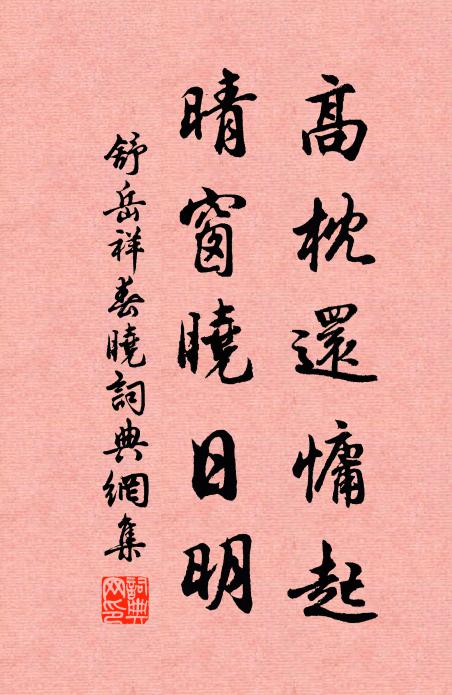 高枕還慵起
晴窗曉日明
舒岳祥春曉詞典網集
詞典网印